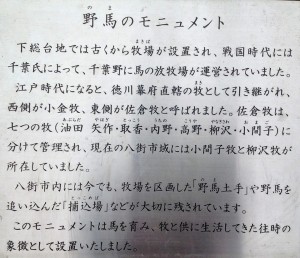 野馬のモニュメント
下総台地では古くから牧場が設置され、戦国時代には
千葉氏によって、千葉野に馬の放牧場が運営されていました。
江戸時代になると、徳川幕府直轄の牧として引き継がれ、
西側が小金牧、東側が佐倉牧と呼ばれました。佐倉牧は、
七つの牧(油田・矢作・取香・内野・高野・柳沢・小間子)
に分けて管理され、現在の八街市域には小間子牧と柳沢牧が
所在していました。
八街市内には今でも、牧場を区画した「野馬土手」や野馬を
追い込んだ「捕込場」などが大切に残されています。
このモニュメントは馬を育み、牧と供に生活してきた往時の
象徴として設置いたしました。